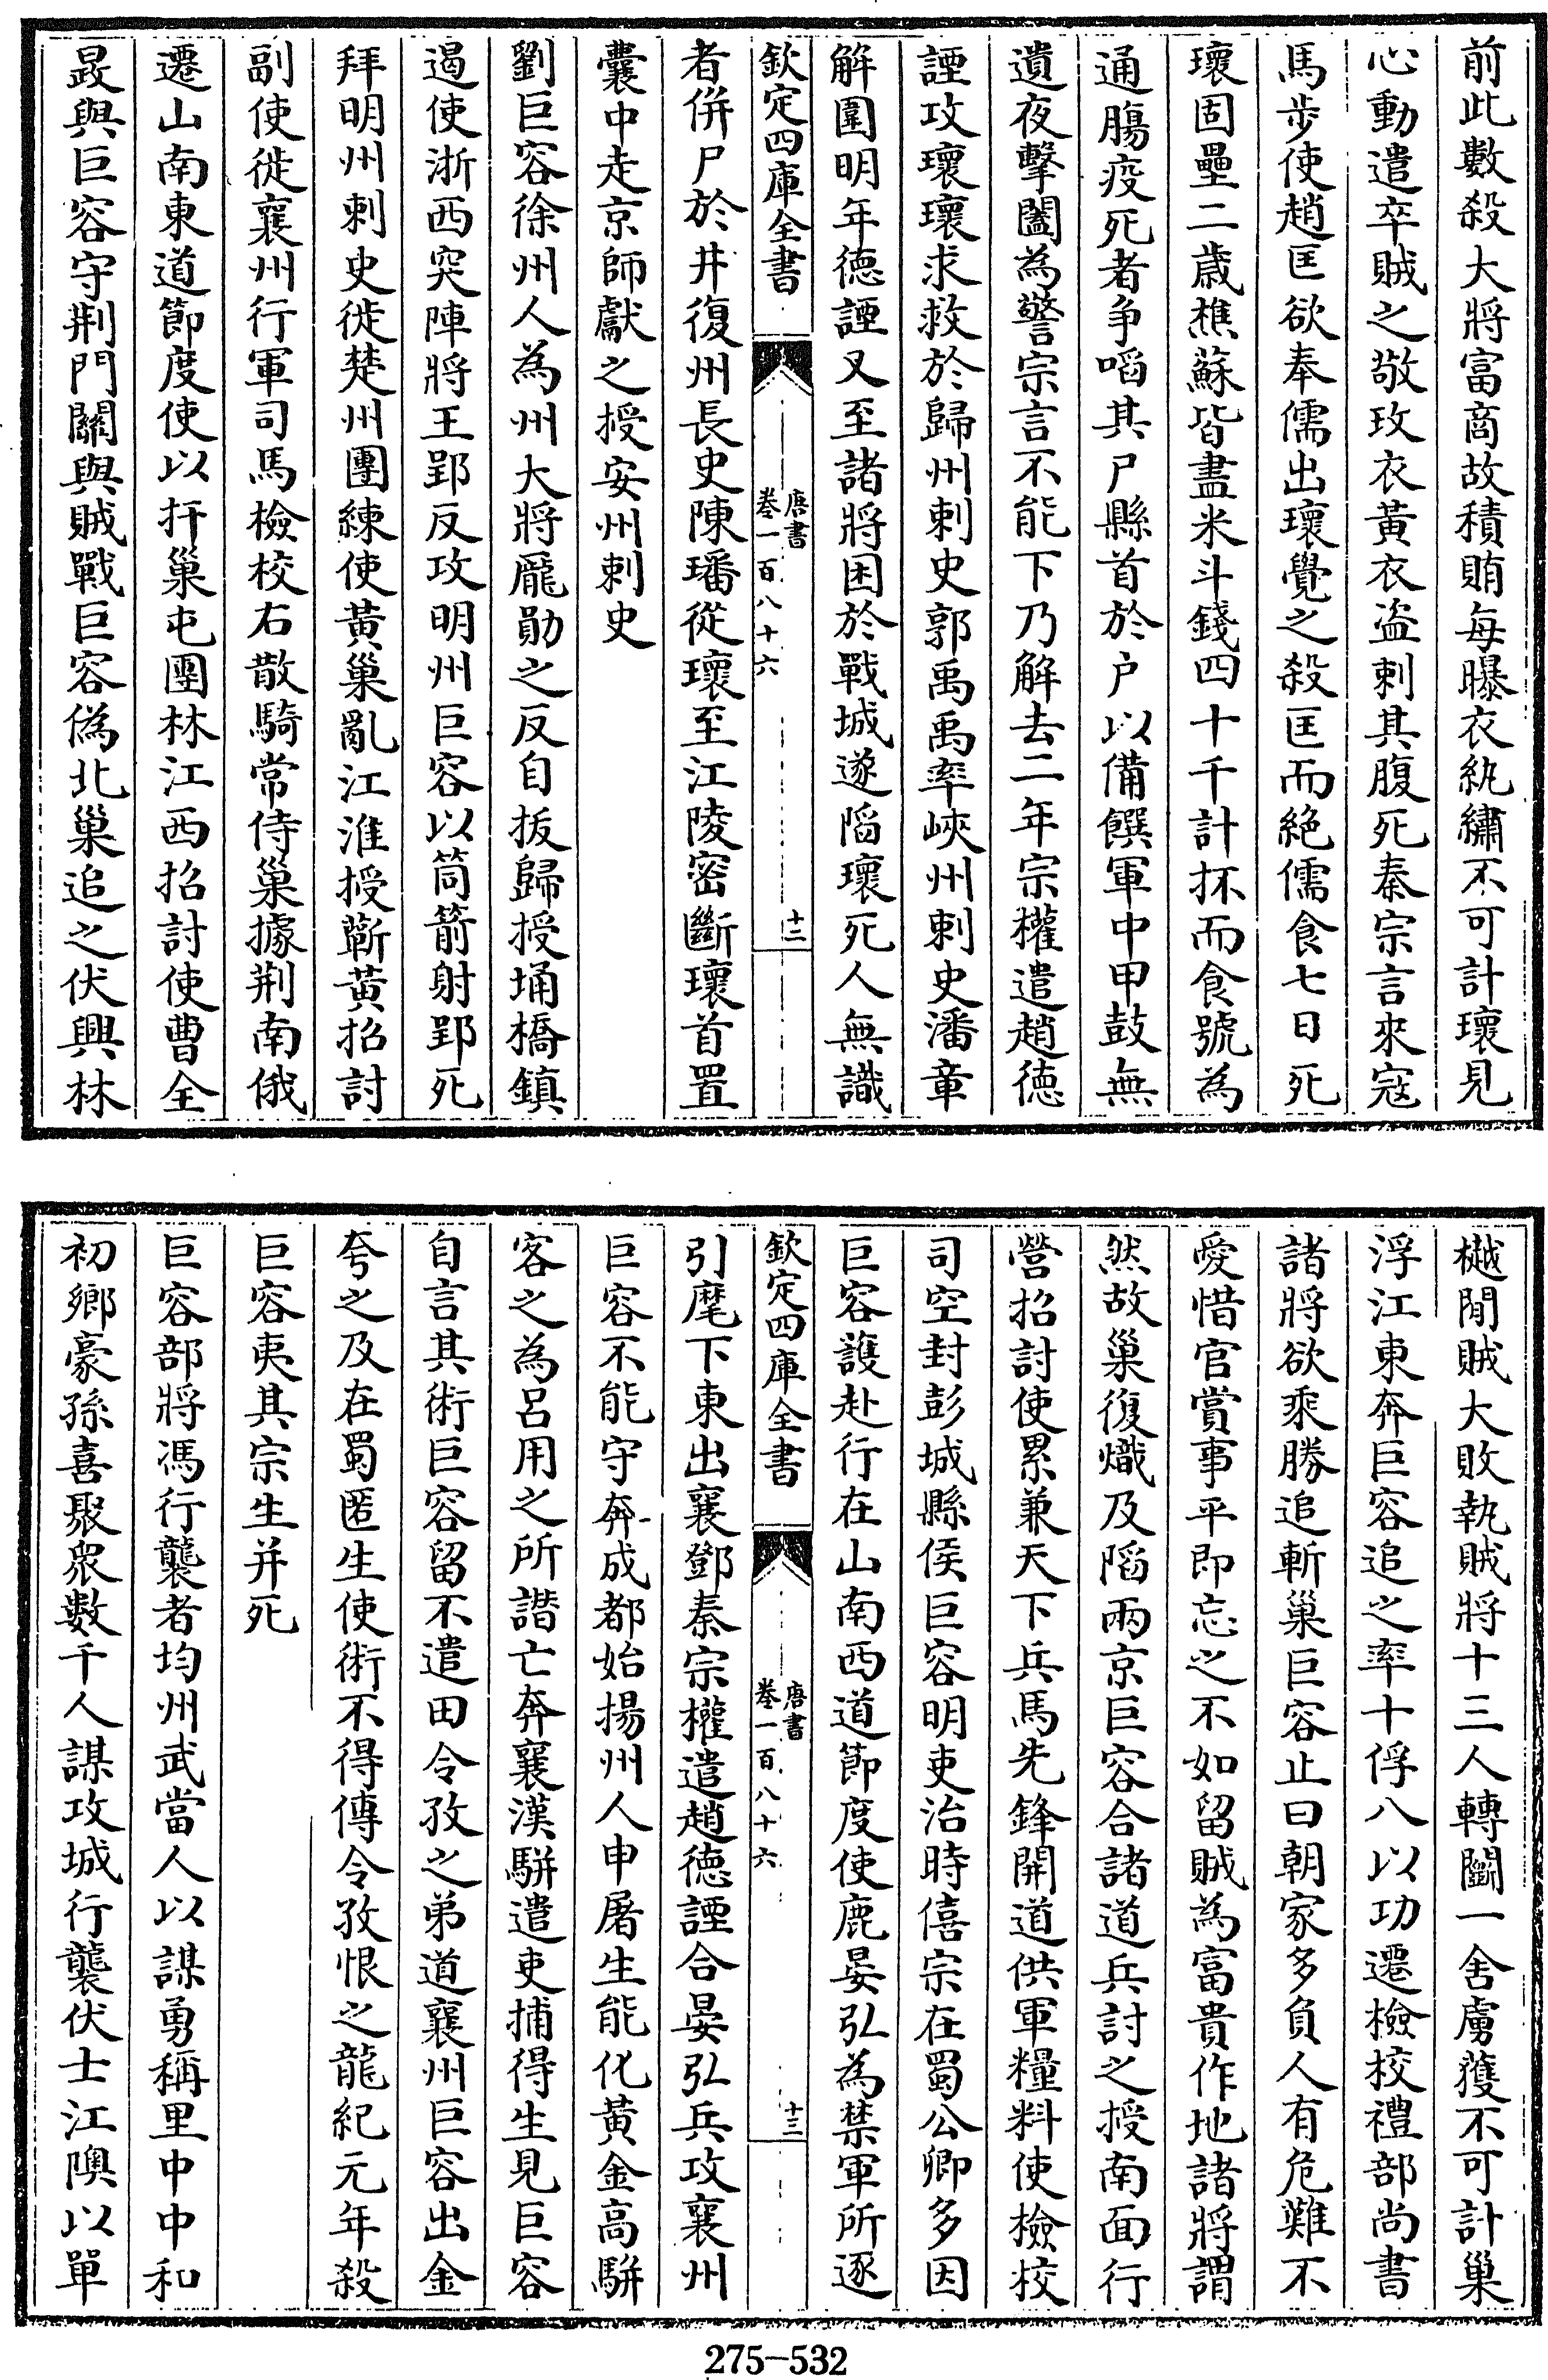 前此數殺大將富商故積賄每曝衣紈繡不可計瓌見
心動遣卒賊之敬玫衣黃衣盜刺其腹死秦宗言來寇
馬步使趙匡欲奉儒出瓌覺之殺匡而絶儒食七日死
瓌固壘二歳樵蘇皆盡米斗錢四十千計抔而食號為
通腸疫死者争啗其尸縣首於户以備饌軍中甲鼓無
遺夜擊闔為警宗言不能下乃解去二年宗權遣趙徳
諲攻瓌瓌求救於歸州刺史郭禹禹率峽州刺史潘章
解圍明年徳諲又至諸將困於戰城遂陷瓌死人無識
欽定四庫全書
唐書
卷一百八十六
十二
者併尸於井復州長史陳璠從瓌至江陵密斷瓌首置
囊中走京師獻之授安州刺史
劉巨容徐州人為州大將龐勛之反自拔歸授埇橋鎮
遏使浙西突陣將王郢反攻明州巨容以筒箭射郢死
拜明州刺史徙楚州團練使黄巢亂江淮授蘄黄招討
副使徙襄州行軍司馬檢校右散騎常侍巢據荆南俄
遷山南東道節度使以扞巢屯團林江西招討使曹全
晸與巨容守荆門關與賊戰巨容偽北巢追之伏興林
樾閒賊大敗執賊將十三人轉鬭一舍虜獲不可計巢
浮江東奔巨容追之率十俘八以功遷檢校禮部尚書
諸將欲乘勝追斬巢巨容止曰朝家多負人有危難不
愛惜官賞事平即忘之不如留賊為富貴作地諸將謂
然故巢復熾及陷兩京巨容合諸道兵討之授南面行
營招討使累兼天下兵馬先鋒開道供軍糧料使檢校
司空封彭城縣侯巨容明吏治時僖宗在蜀公卿多因
巨容護赴行在山南西道節度使鹿晏弘為禁軍所逐
欽定四庫全書
唐書
卷一百八十六
十三
引麾下東出襄鄧秦宗權遣趙徳諲合晏弘兵攻襄州
巨容不能守奔成都始揚州人申屠生能化黄金高駢
客之為呂用之所譖亡奔襄漢駢遣吏捕得生見巨容
自言其術巨容留不遣田令孜之弟道襄州巨容出金
夸之及在蜀匿生使術不得傳令孜恨之龍紀元年殺
巨容夷其宗生并死
巨容部將馮行襲者均州武當人以謀勇稱里中中和
初鄉豪孫喜聚衆數千人謀攻城行襲伏士江隩以單
275-532